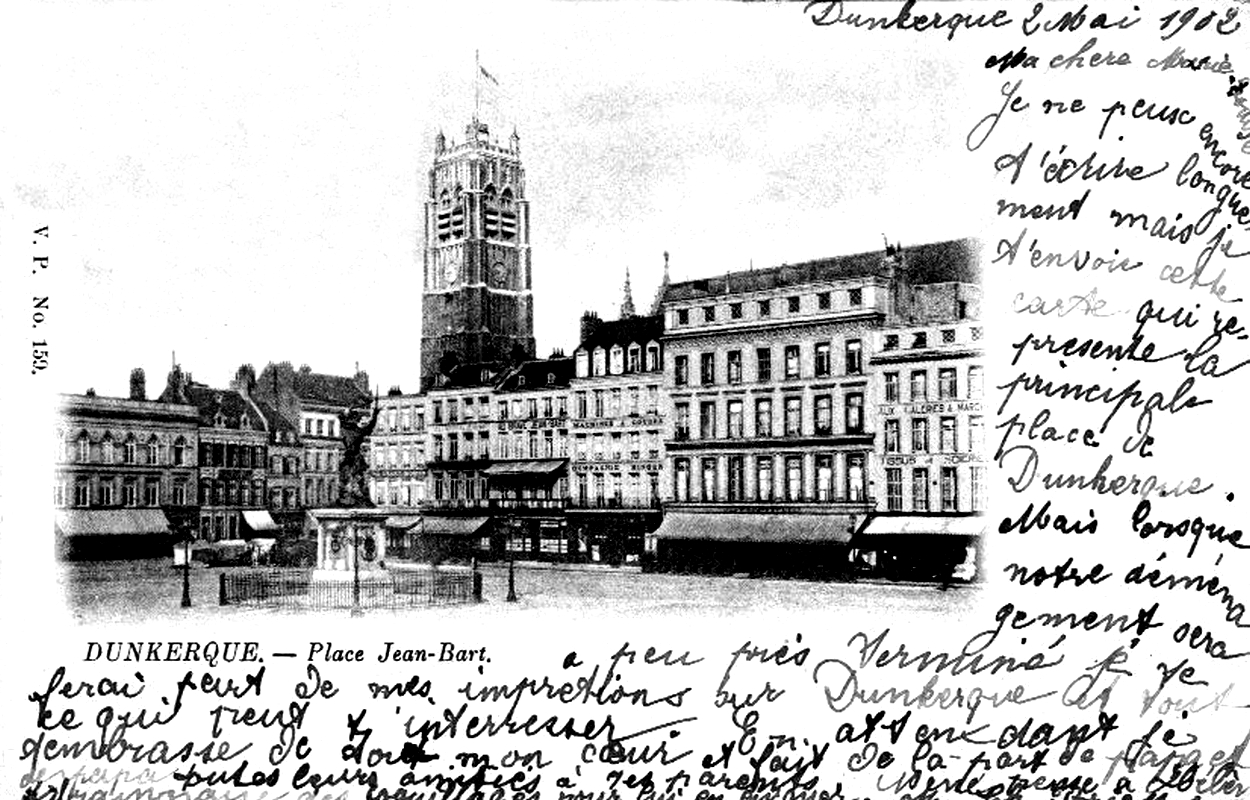 Dunkerque 2 Mai 1902
Ma chere Marie
Je ne peux encore
t'écrire longue
ment mais je
t'envoie cette
carte qui re-
présente la
principale
place de
Dunkerque.
Mais lorsque
notre démena
gement sera
V. P. No. 159.
AUX GALERIES & MARC
TISSUS
DUNKERQUE. — Place Jean-Bart.
a peu près terminé je te
ferai part de mes impretions sur Dunkerque et tout
ce qui peut t'interresser En attendant je
t'embrasse de tout mon cœur et fait de la part de
papa toutes leurs amitiés à tes parents